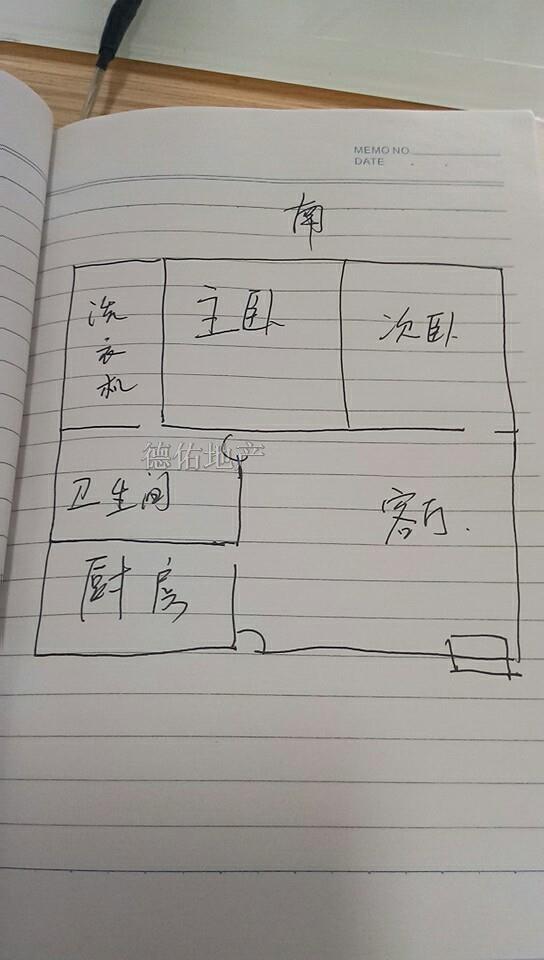 MEMO NO
DATE
南
洗衣机
主卧
次卧
德佑地产
卫生间
客厅
厨房